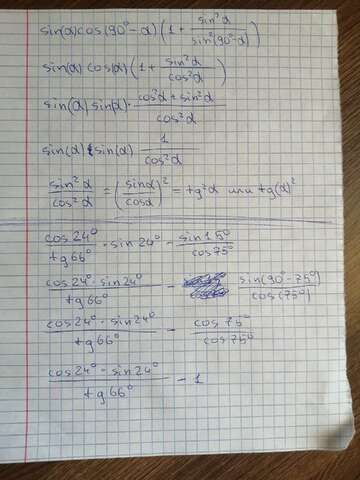 sin(α)cos(90° - α)(1 + sin²α / sin²(90°-α))
sin(α) cos(α)(1 + sin²α / cos²α)
sin(α) sin(α) · cos²α + sin²α / cos²α
sin(α) sin(α) 1 / cos²α
sin²α / cos²α = (sinα / cosα)² = tg²α или tg(α)²
cos24° / tg66° · sin 24° - sin15° / cos75°
cos24° · sin24° / tg66° - sin(90° - 75°) / cos(75°)
cos24° · sin24° / tg66° - cos75° / cos75°
cos24° · sin24° / tg66° - 1